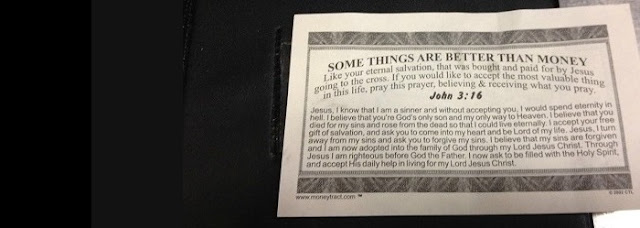 SOME THINGS ARE BETTER THAN MONEY
Like your eternal salvation, that was bought and paid for by Jesus
going to the cross. If you would like to accept the most valuable thing
in this life, pray this prayer, believing & receiving what you pray.
John 3:16
Jesus, I know that I am a sinner and without accepting you, I would spend eternity in
hell. I believe that you're God's only son and my only way to Heaven. I believe that you
died for my sins and rose from the dead so that I could live eternally. I accept your free
gift of salvation, and ask you to come into my heart and be Lord of my life. Jesus, I turn
away from my sins and ask you to forgive my sins. I believe that my sins are forgiven
and I am now adopted into the family of God through my Lord Jesus Christ. Through
Jesus I am righteous before God the Father. I now ask to be filled with the Holy Spirit,
and accept His daily help in living for my Lord Jesus Christ.
www.moneytract.com ™